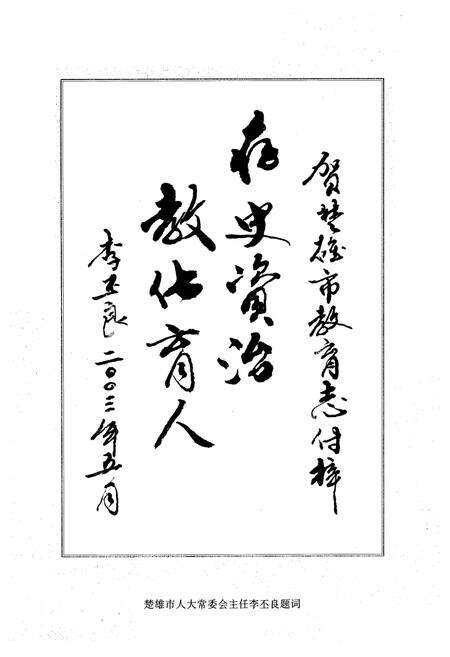 贺楚雄市教育志付梓
存史資治
教化育人
李丕良二〇〇三年五月
楚雄市人大常委会主任李丕良题词